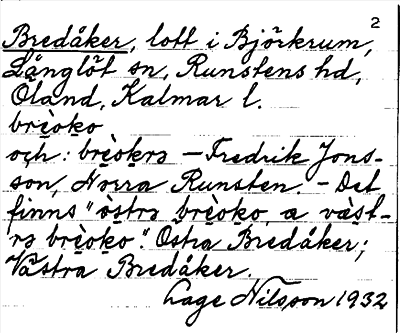 2
Bredåker, lott i Björkrum,
Långlöt sn, Runstens hd,
Öland, Kalmar l.
brèoko
och: brèokrə – Fredrik Jons-
son, Norra Runsten. – Det
finns "òstrə brèoko a vàst-
rə brèoko". Östra Bredåker;
Västra Bredåker.
Lage Nilsson 1932